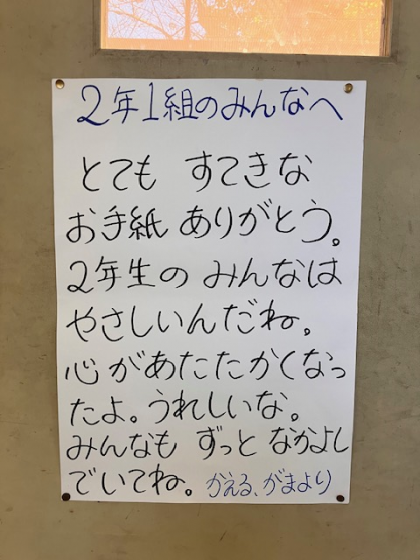 2年1組のみんなへ
とても すてきな
お手紙 ありがとう。
2年生の みんなは
やさしいんだね。
心があたたかくなっ
たよ。うれしいな。
みんなも ずっと なかよし
でいてね。かえる、がまより